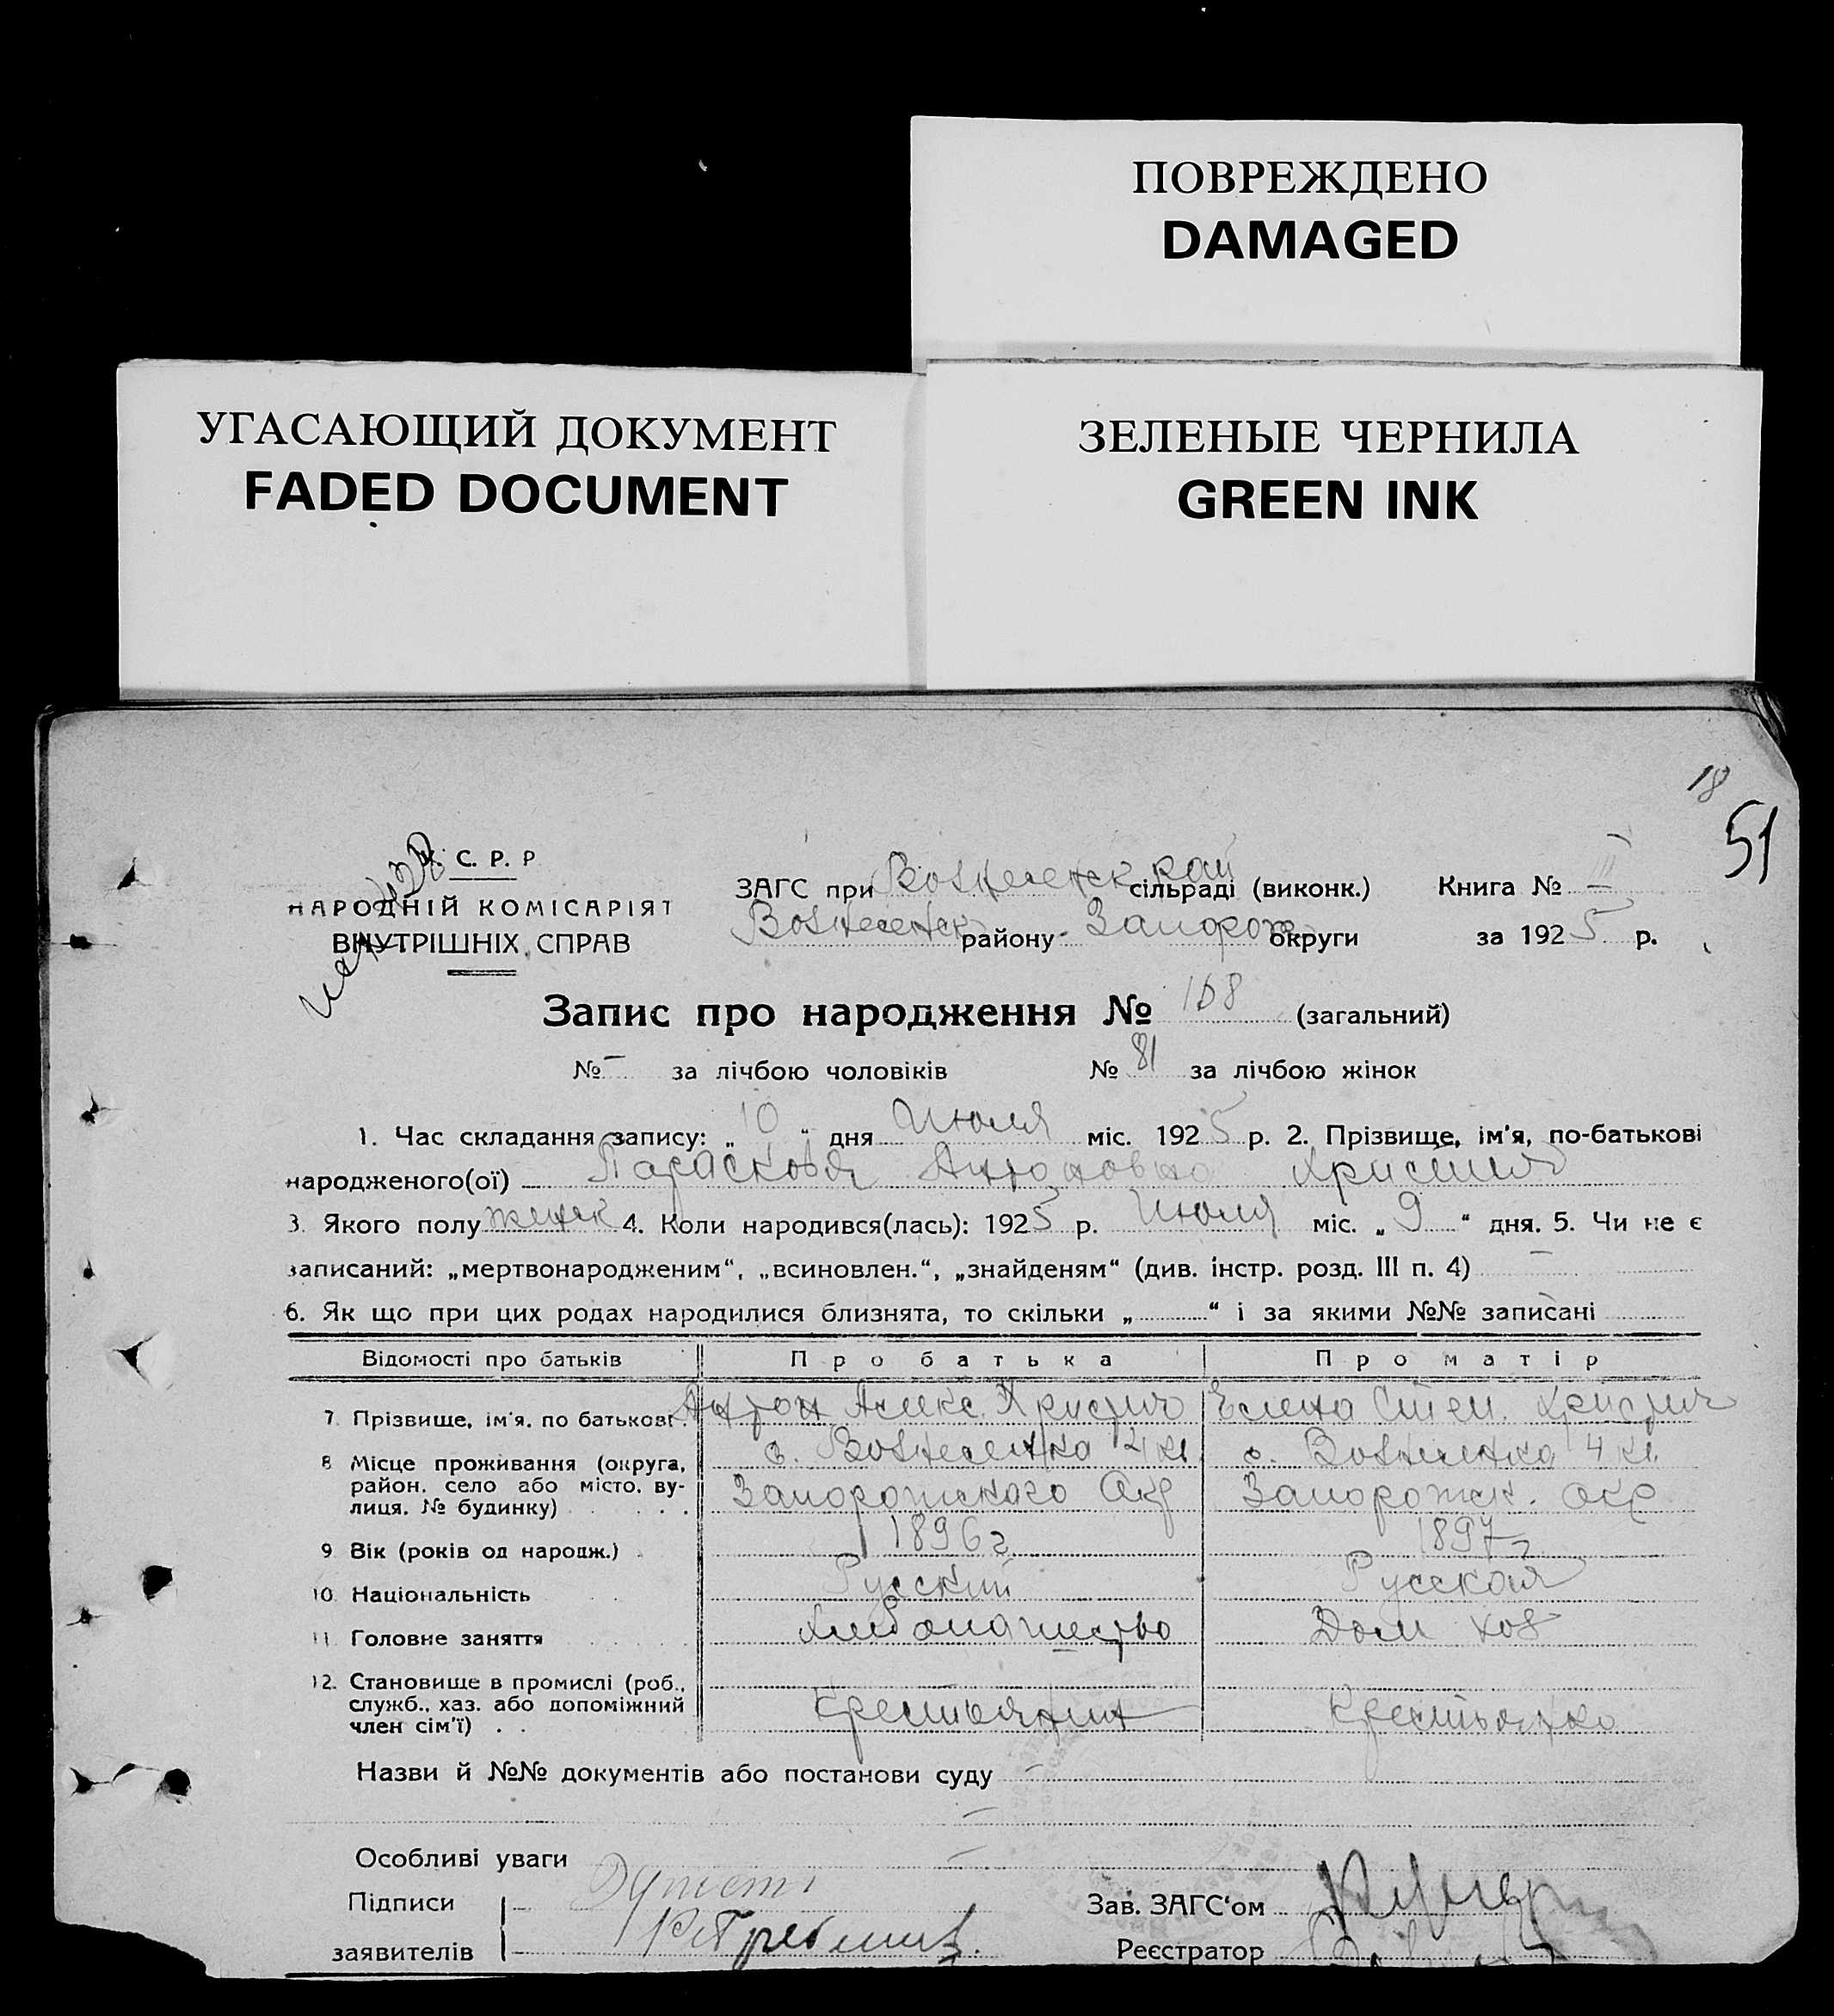 ПОВРЕЖДЕНО
DAMAGED
УГАСАЮЩИЙ ДОКУМЕНТ
FADED DOCUMENT
ЗЕЛЕНЫЕ ЧЕРНИЛА
GREEN INK
18
51
У. С. Р. Р
НАРОДНІЙ КОМІСАРІЯТ
ВНУТРІШНІХ СПРАВ
ЗАГС при Вознесенской сільраді (виконк.) Книга № III
Вознесенск району Запорож округи за 1925 р.
Запис про народження № 158 (загальний)
№ – за лічбою чоловіків № 81 за лічбою жінок
1. Час складання запису: „10“ дня Июля міс. 1925 р. 2. Прізвище, ім'я, по-батькові
народженого(ої) Парасковья Антоновна Христич
3. Якого полу женск 4. Коли народився(лась): 1925 р. Июля міс. „9“ дня. 5. Чи не є
записаний: „мертвонародженим“, „всиновлен.“, „знайденям“ (див. інстр. розд. III п. 4) –
6. Як що при цих родах народилися близнята, то скільки „ “ і за якими №№ записані
Відомості про батьків Про батька Про матір
7. Прізвище, ім'я, по батькові. Антон Алекс. Христич Елена Степ. Христич
8 Місце проживання (округа, район, село або місто, вулиця, № будинку) с. Вознесенка 4 кл. с. Вознесенка 4 кл.
Запорожского Окр Запорожск. окр
9 Вік (років од народж.) 1896 г 1897 г
10. Національність Русский Русская
11. Головне заняття хлебопашество Дом хоз
12. Становище в промислі (роб., служб., хаз. або допоміжний член сім'ї) Крестьянин Крестьянка
Назви й №№ документів або постанови суду –
–
Особливі уваги –
Підписи
заявителів
Зав. ЗАГС'ом
Реєстратор